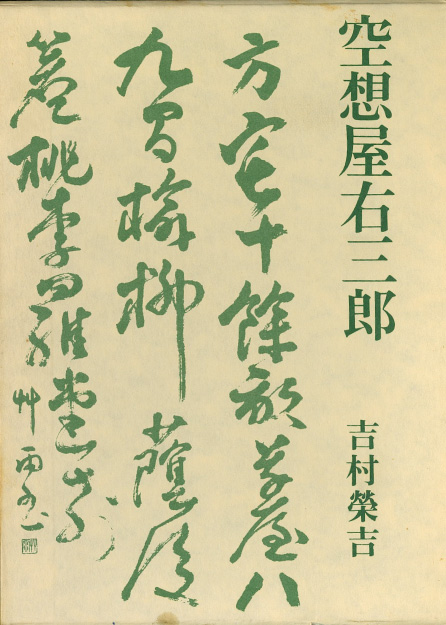 空想屋右三郎
吉村榮吉
方宅十餘畝草屋八
九間榆柳蔭後
簷桃李羅堂前